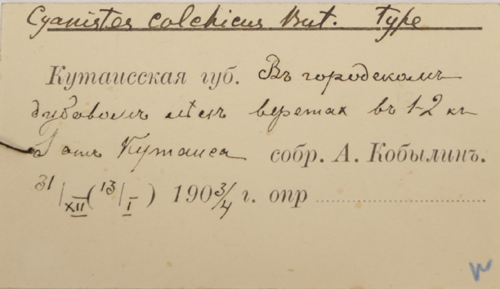 Cyanistes colchicus But. Type
Кутаисская губ. Въ городскомъ
дубовомъ лѣсу верстах въ 1-2 къ
З отъ Кутаиса собр. А. Кобылинъ.
31/XII (13/I) 190 3/4 г. опр